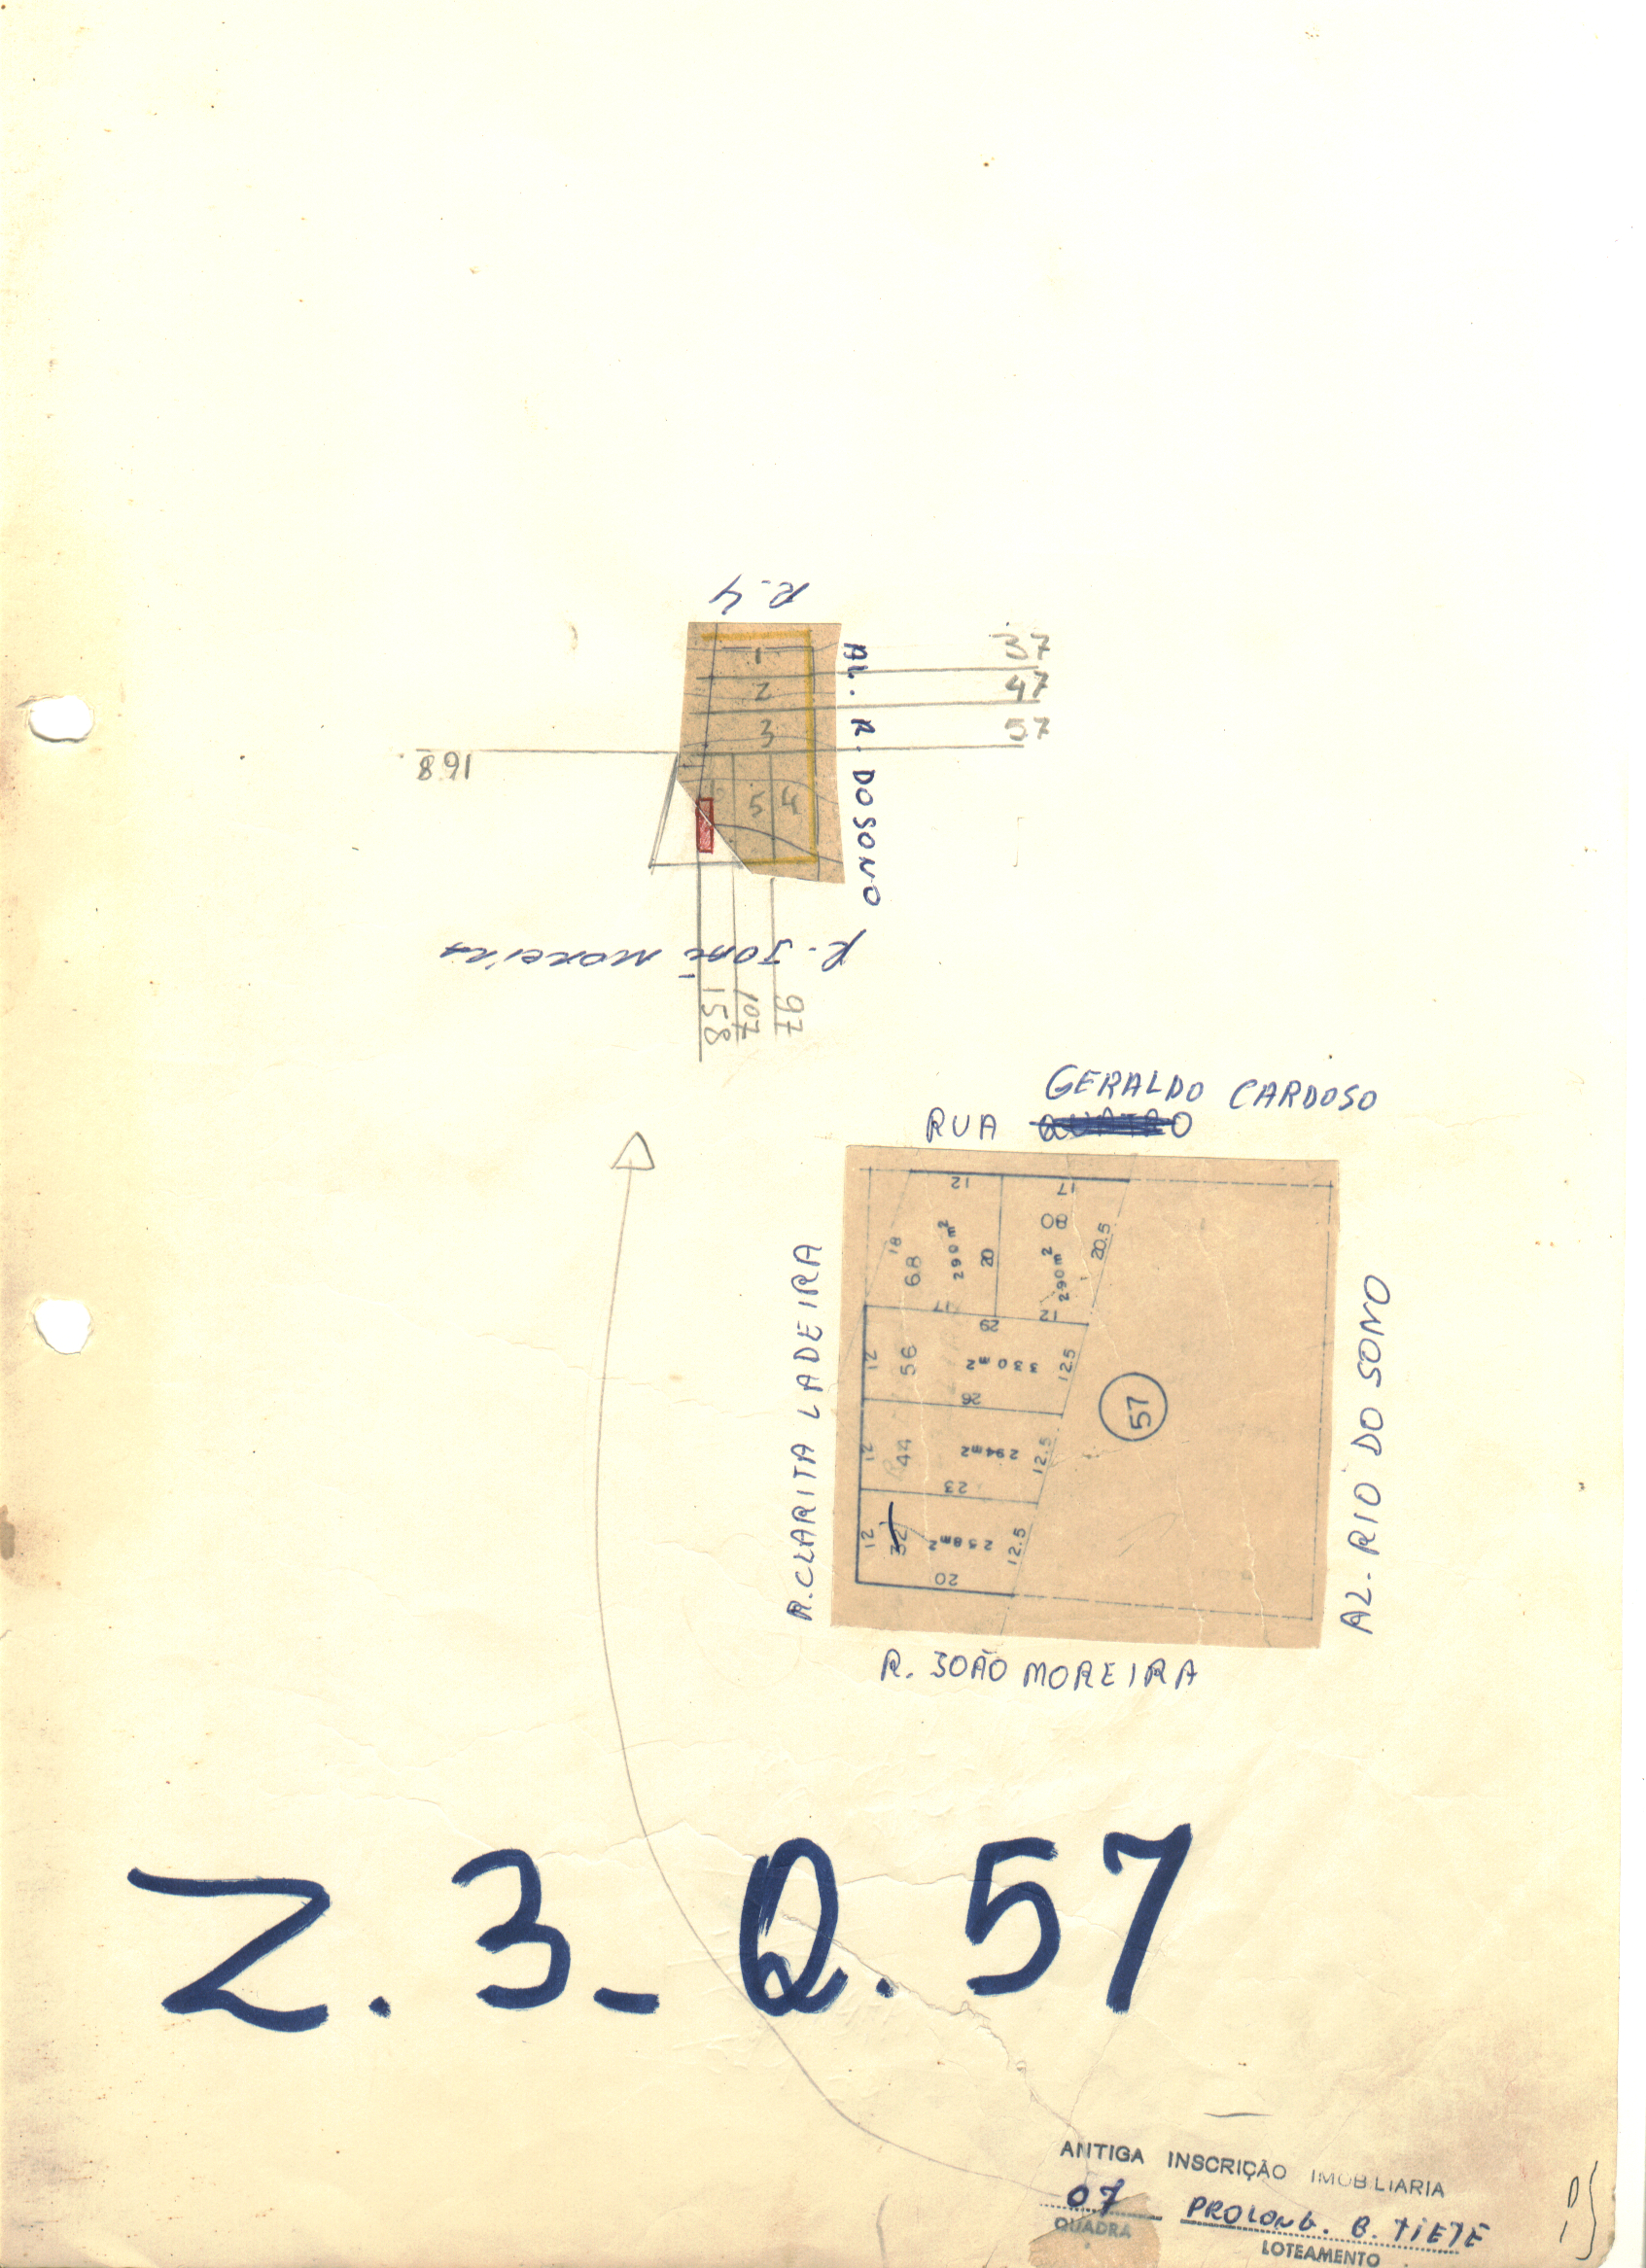 R.4
37
47
57
1
2
3
168
AL. R. DO SONO
5
4
R. José Moreira
158
107
97
GERALDO CARDOSO
RUA
12
17
80
18
68
290m²
20
290m²
20.5
17
12
29
12
56
330m²
12.5
26
12
44
294m²
12.5
57
23
12
32
258m²
12.5
20
R. CLARITA LADEIRA
AL. RIO DO SONO
R. JOÃO MOREIRA
Z. 3_ Q. 57
ANTIGA INSCRIÇÃO IMOBILIARIA
07 PROLONG. B. TIETÊ
QUADRA
LOTEAMENTO